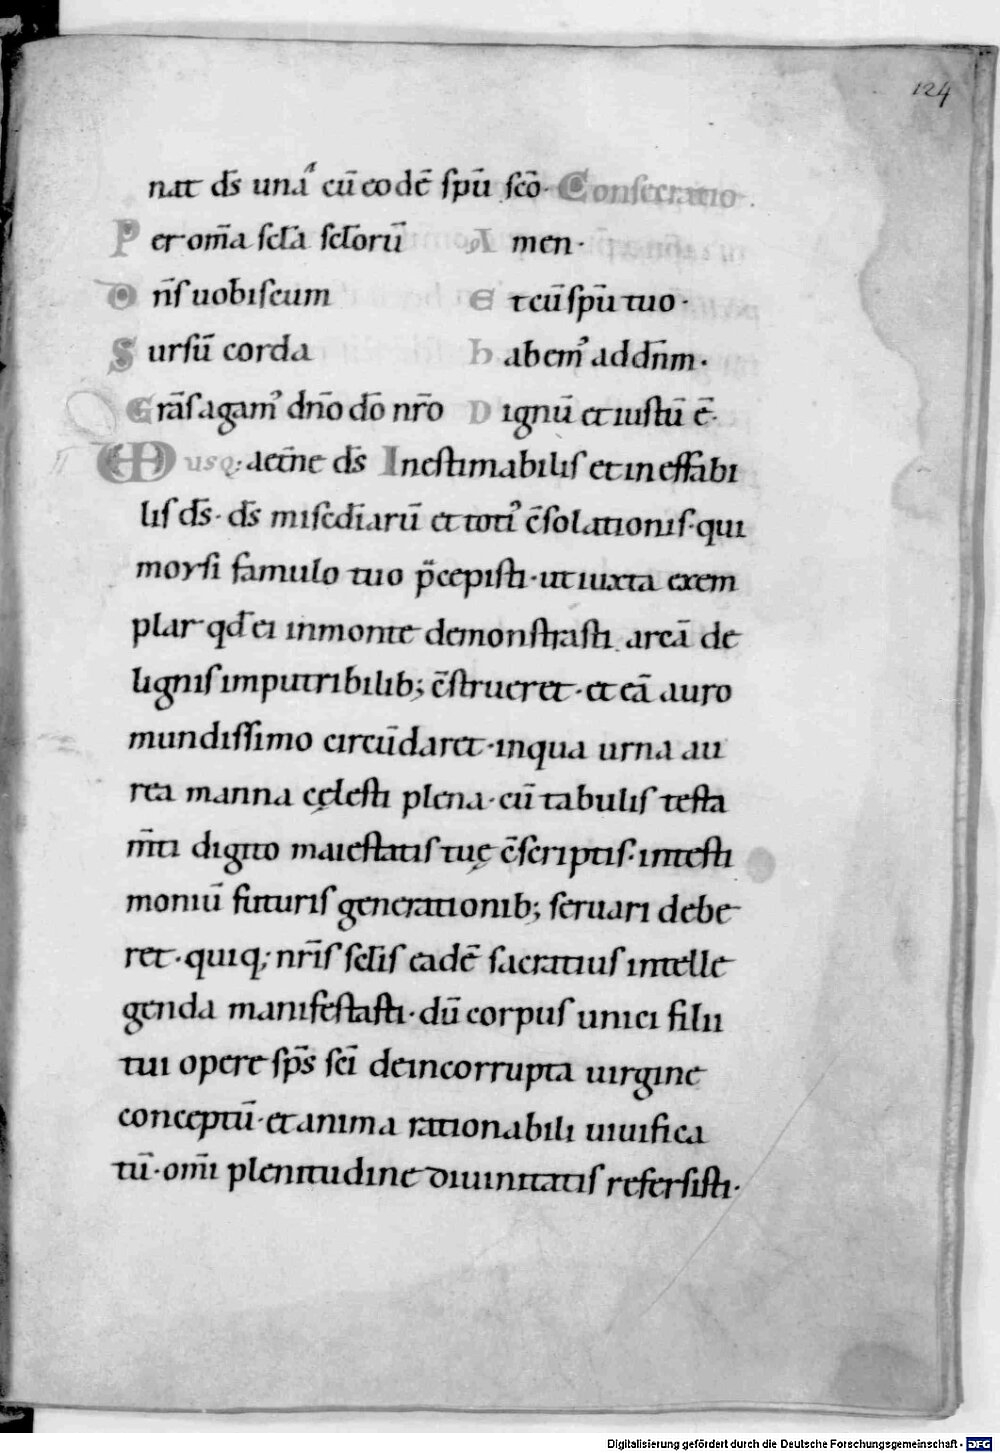 124
nat d̄s una cū eodē sp̄u sc̄o· Consecratio.
Per om̄a scl̄a scl̄orū Amen·
Dn̄s uobiscum Et cū sp̄u tuo·
Sursū corda habem᾽ ad dn̄m·
Grās agam᾽ dn̄o dō nr̄o Dignū et iustū ē·
VD usq; aet̄ne d̄s Inestimabilis et ineffabi
lis d̄s· d̄s misc̄diarū et toti᾽ c̄solationis· qui
moysi famulo tuo p̄cepisti· ut iuxta exem
plar qđ ei in monte demonstrasti arcā de
lignis imputribilib; c̄strueret· et eā auro
mundissimo circūdaret· in qua urna au
rea manna cęlesti plena· cū tabulis testa
m̄ti digito maiestatis tuę c̄scriptis· in testi
moniū futuris generationib; seruari debe
ret· quiq; nr̄is scl̄is eadē sacratius intelle
genda manifestasti· dū corpus unici filii
tui opere sp̄s sc̄i de incorrupta uirgine
conceptū· et anima rationabili uiuifica
tū· om̄i plenitudine diuinitatis refersisti·
Digitalisierung gefördert durch die Deutsche Forschungsgemeinschaft - DFG